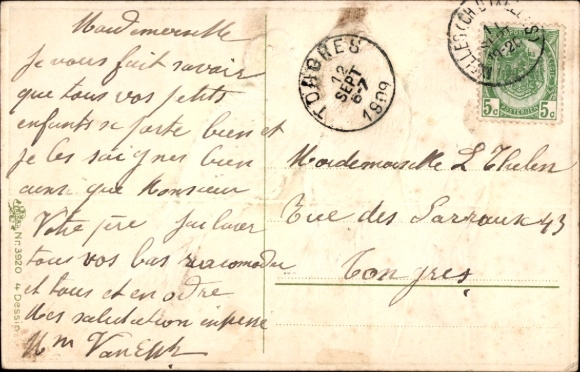 Mademoiselle
je vous fait savoir
que tous vos petits
enfants se porte bien et
je les soignes bien
ainsi que Monsieur
Votre père j'ai laver
tous vos bas racomoder
et tous et en odre
Mes salutation
Mm Van
Mademoiselle L Thelen
Rue des 43
Tongres
TONGRES
12
SEPT
6-7
1909
5c 5c
Nr. 3920 4 Dessin